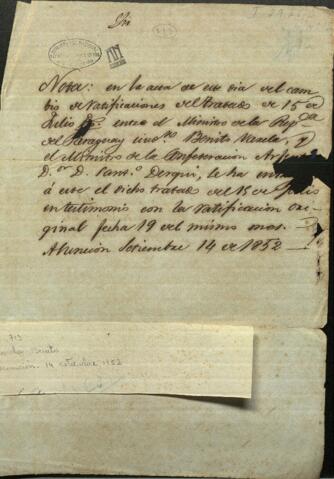 Nota: en la acta de este dia del cam
bio de ratificaciones del tratado de 15 de
Julio entre el Ministro de la Repca
del Paraguay ciudno Benito Varela, y
el Ministro de la Confederacion Argen
D.or D. Santo Derqui, se ha en
á este el dicho tratado del 15 de Julio
en testimonio con la ratificacion ori
ginal fecha 19 del mismo mes.
Asuncion Setiembre 14 de 1852
713
Benito
14 setiembre 1852